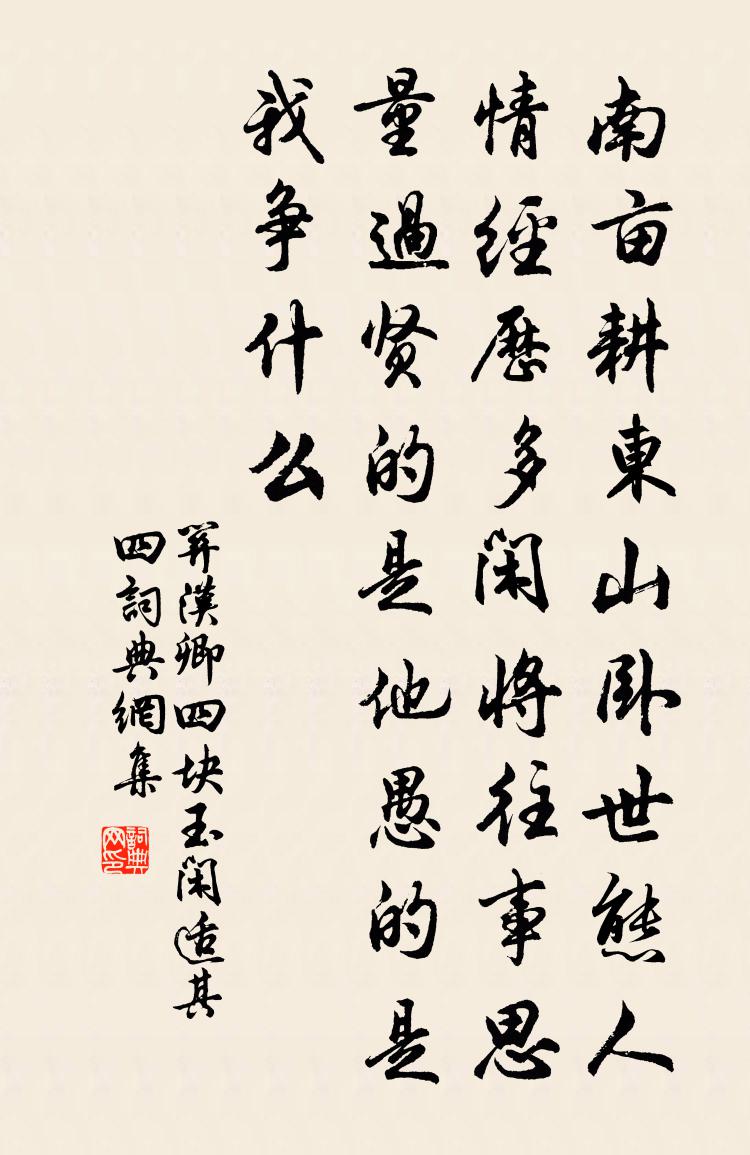 南亩耕東山卧世態人
情經歷多閑將往事思
量過贤的是他愚的是
我争什么
關漢卿四块玉閑适其
四詞典網集
詞典网印